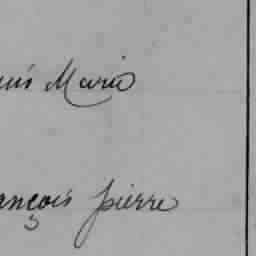 uis Maria
ançois pierre